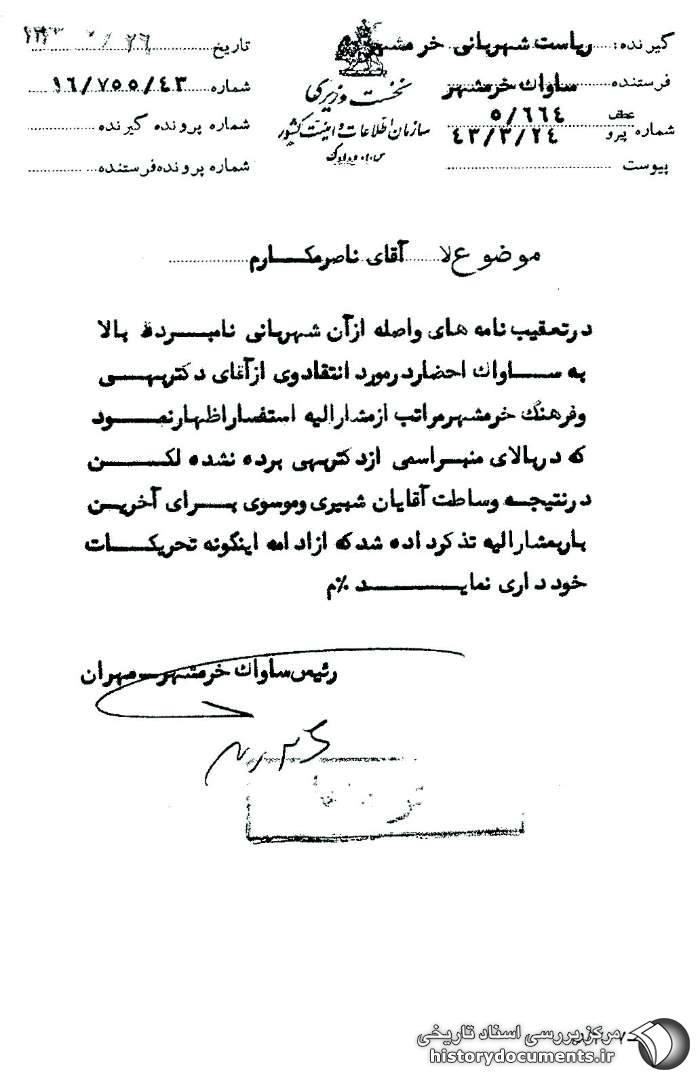 گیرنده: ریاست شهربانی خرمشهر
فرستنده ساواک خرمشهر
عطف ۵/۶۶۴
شماره پیرو ۴۳/۳/۲۴
پیوست
نخست وزیری
سازمان اطلاعات و امنیت کشور
س.ا.و.ا.ک
تاریخ
شماره ۱۶/۷۵۵/۴۳
شماره پرونده گیرنده
شماره پرونده فرستنده
موضوع آقای ناصر مکارم
درتعقیب نامه های واصله ازآن شهربانی نامبرده بالا
به ساواک احضاردرمورد انتقادوی ازآقای دکتربهی
وفرهنگ خرمشهرمراتب ازمشارالیه استفساراظهارنمود
که دربالای منبراسمی ازدکتربهی برده نشده لکن
درنتیجه وساطت آقایان شبیری وموسوی برای آخرین
باربمشارالیه تذکرداده شدکه ازادامه اینگونه تحریکات
خودداری نماید ٪م
رئیس ساواک خرمشهر_مهران
مرکز بررسی اسناد تاریخی
historydocuments.ir